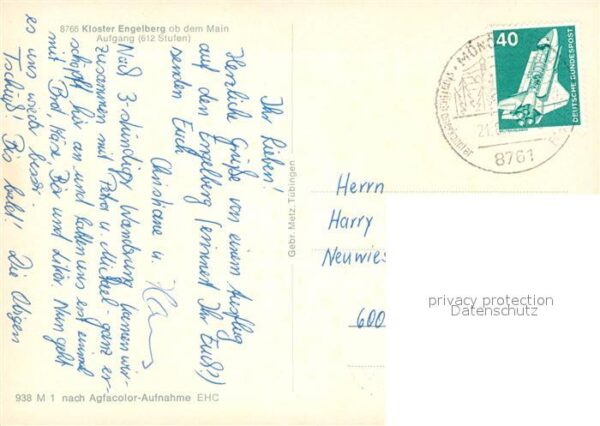 8765 Kloster Engelberg ob dem Main
Aufgang (612 Stufen)
Ihr Lieben!
Herzliche Grüße von einem Ausflug
auf den Engelberg (erinnert Ihr Euch?)
senden Euch
Christiane u.
Naß 3-stündiger Wanderung kamen wir
zusammen mit Petra u. Michael - ganz er-
schöpft hier an und labten uns erst einmal
mit Brot, Käse Bier und Likör. Nun geht
es uns wieder besser.
Tschüß! Bis bald! Die Obigen
938 M 1 nach Agfacolor-Aufnahme EHC
Gebr. Metz, Tübingen
40
DEUTSCHE BUNDESPOST
8761
Herrn
Harry
Neuwies
600
privacy protection
Datenschutz